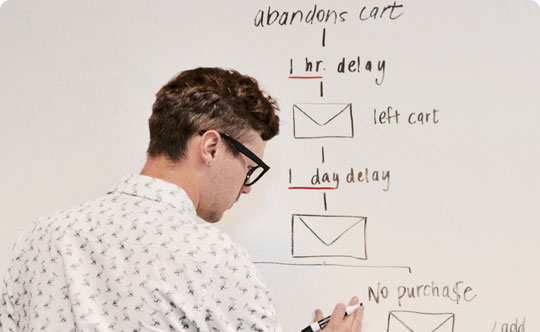 abandons cart
1 hr. delay
left cart
1 day delay
No purcha$e
add